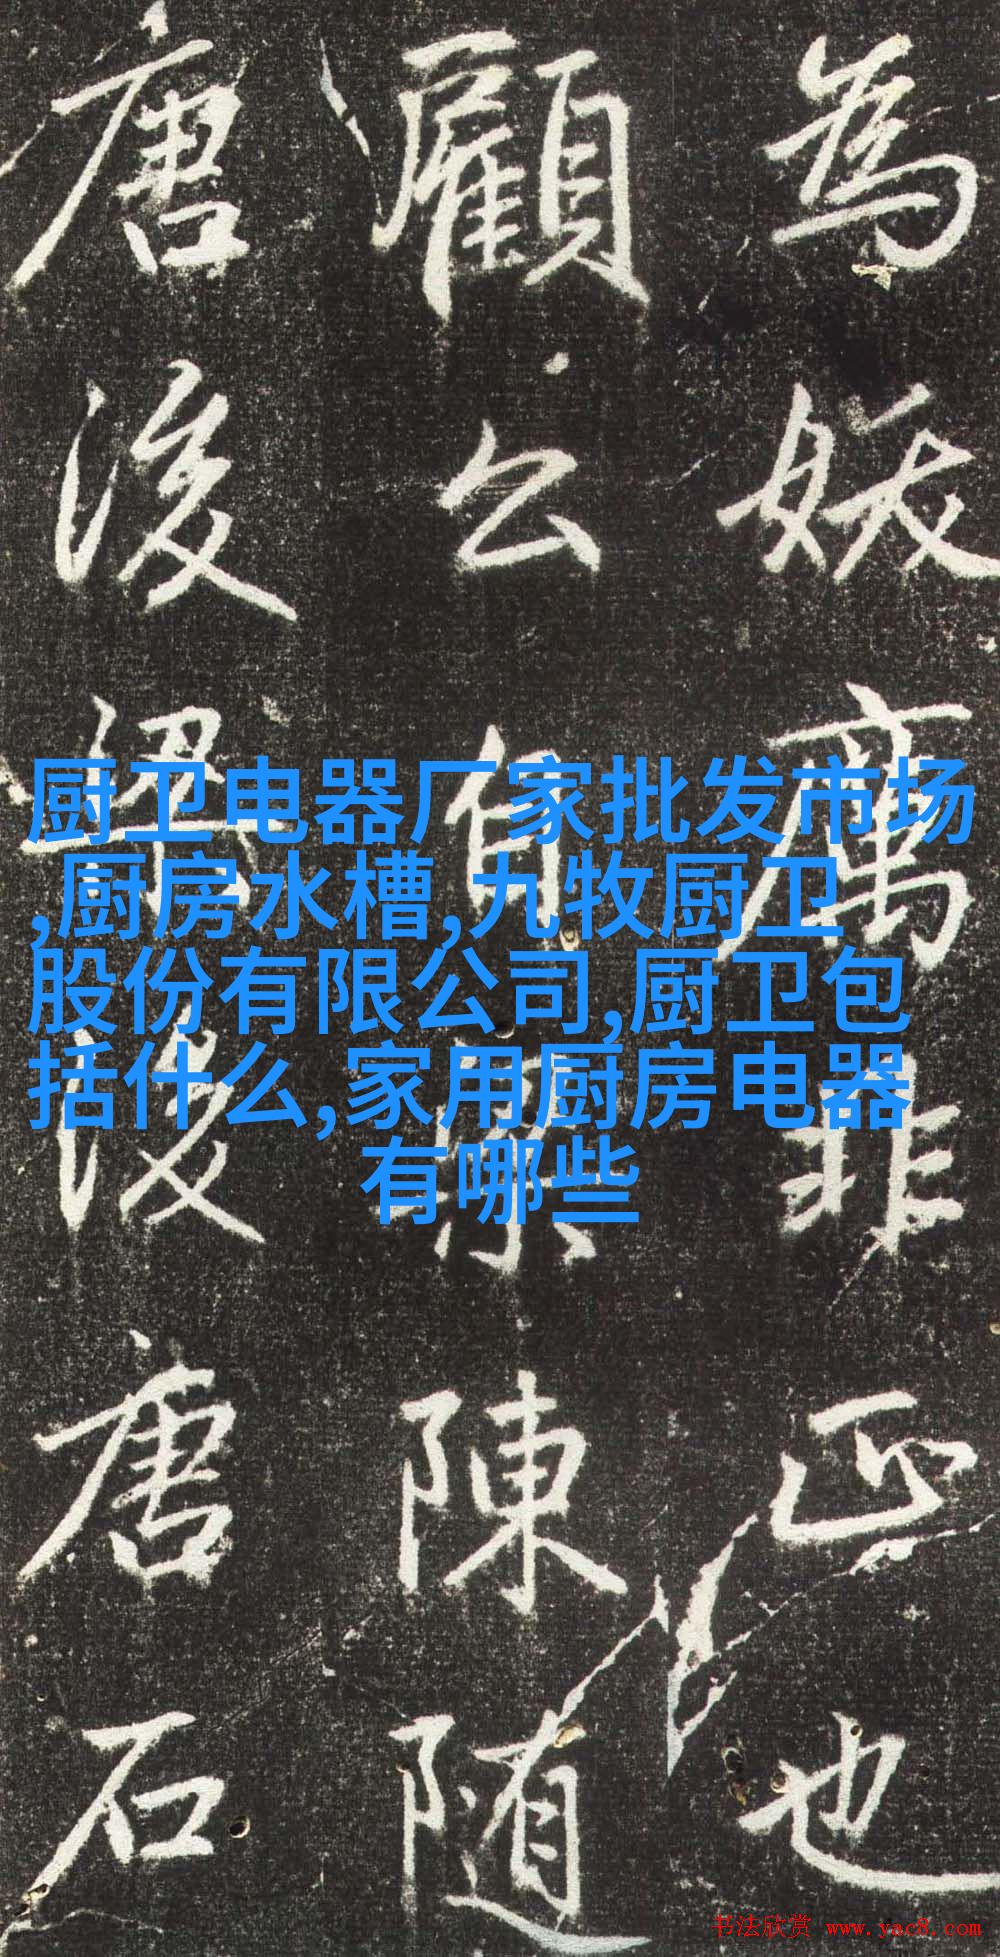 為妖厲非正也
顧公自梁陳随
唐後梁後唐石
厨卫电器厂家批发市场
,厨房水槽,九牧厨卫
股份有限公司,厨卫包
括什么,家用厨房电器
有哪些
书法欣赏 www.yac8.com